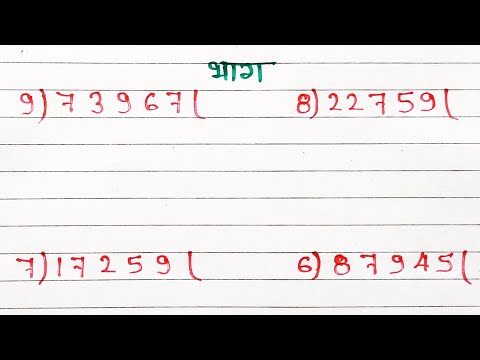 भाग
9)73967( 8)22759(
7)17259( 6)87945(